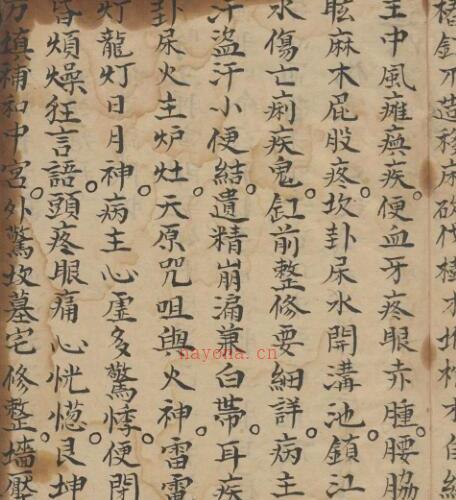 不造移床砍伐樹木
主中風癱瘓疾。便血牙疼眼赤腫。腰脇
眩麻木屁股疼。坎卦屎水開溝池。鎮江
水傷亡痢疾鬼。釭前整修要細詳。病主
汗盜汗小便結。遺精崩漏兼白帶。耳疾
卦屎火主炉灶。天原咒咀與火神。雷
灯龍灯日月神。病主心虛多驚悸。便閉
昏煩燥狂言語。頭疼眼痛心恍惚。艮坤
方填補和中宮。外驚坟墓宅修整。墻壓
nayona.cn